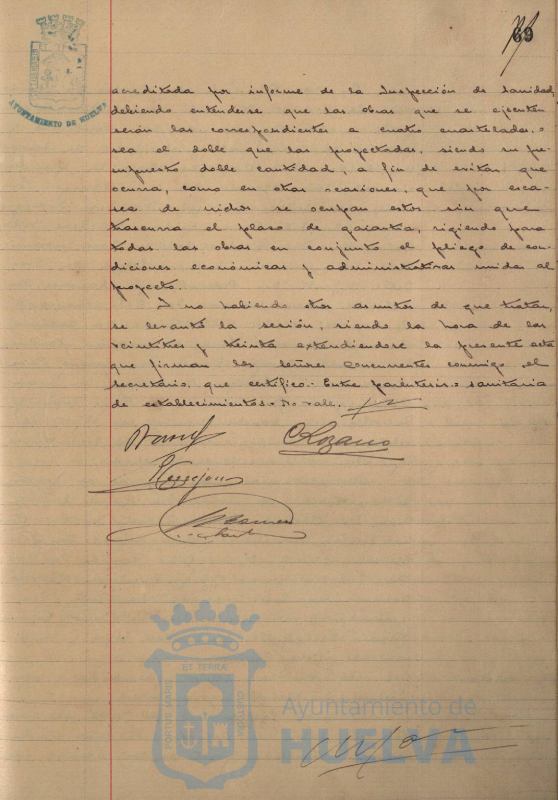 69
AYUNTAMIENTO DE HUELVA
acreditada por informe de la Inspección de Sanidad,
debiendo entenderse que las obras que se ejecuten
serán las correspondientes a cuatro cuarteladas, o
sea el doble que las proyectadas, siendo su pre-
supuesto doble cantidad, a fin de evitar que
ocurra, como en otras ocasiones, que por esca-
sea de nichos se ocupan estos sin que
trascurra el plazo de garantía, rigiendo para
todas las obras en conjunto el pliego de con-
diciones económicas y administrativas unidas al
proyecto.
Y no habiendo otros asuntos de que tratar,
se levantó la sesión, siendo la hora de las
veintitres y treinta extendiendose la presente acta
que firman los señores concurrentes conmigo el
secretario, que certifico.- Entre parentesis.- sanitaria
de establecimientos.- No vale.
Lozano
ET TERRAE
PORTUS MARIS
CUSTODIA
Ayuntamiento de
HUELVA